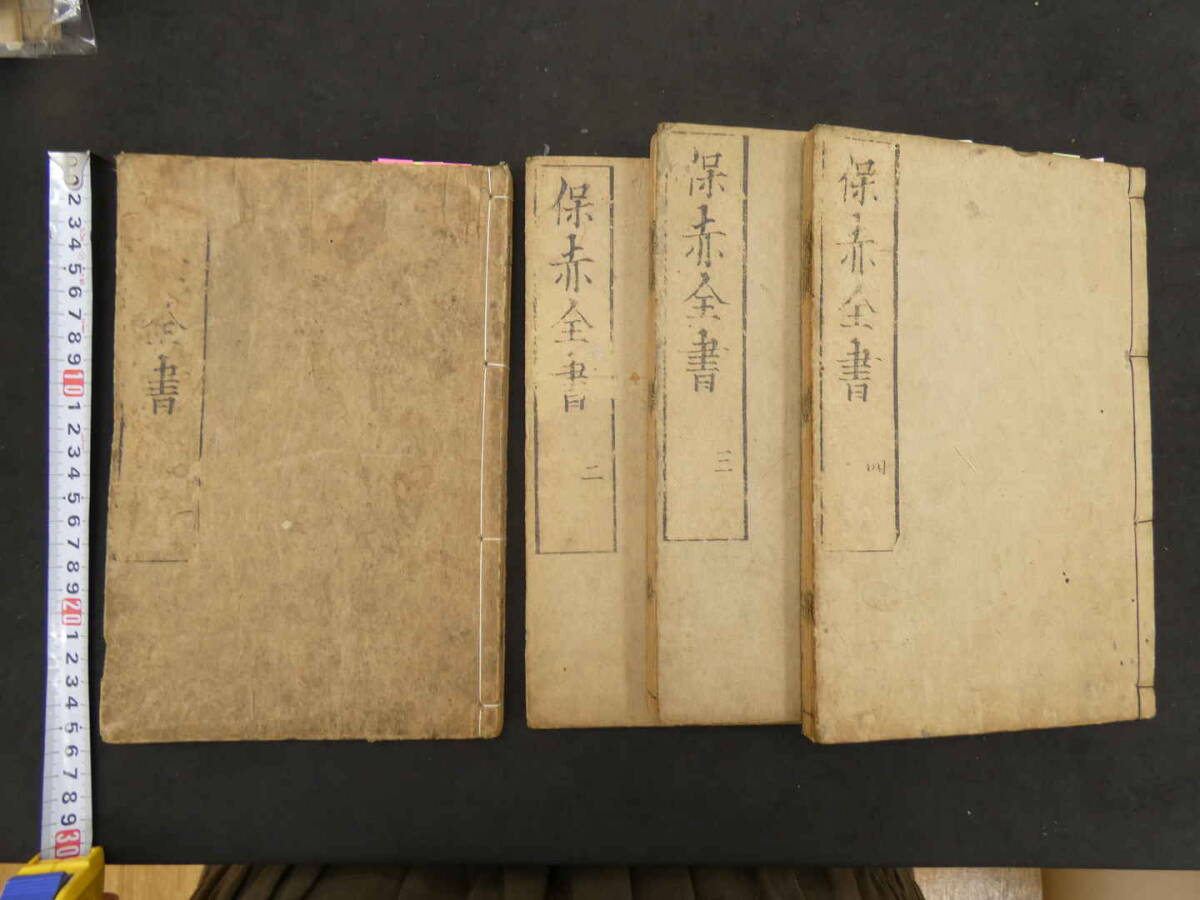 全書
保赤全書
二
保赤全書
三
保赤全書
四
2 3 4 5 6 7 8 9 10 1 2 3 4 5 6 7 8 9 20 1 2 3 4 5 6 7 8 9 30